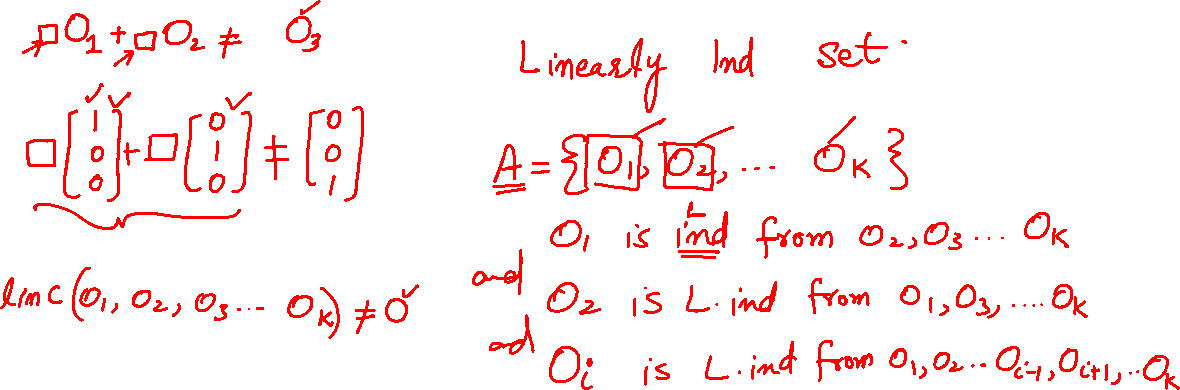 □O₁ + □O₂ ≠ O₃
□[1 0 0] + □[0 1 0] ≠ [0 0 1]
linc(O₁, O₂, O₃... Oₖ) ≠ O
Linearly Ind set.
A = {O₁, O₂, ... Oₖ}
O₁ is L ind from O₂, O₃... Oₖ
and O₂ is L.ind from O₁, O₃, ....Oₖ
and Oᵢ is L.ind from O₁, O₂... Oᵢ₋₁, Oᵢ₊₁, ..Oₖ